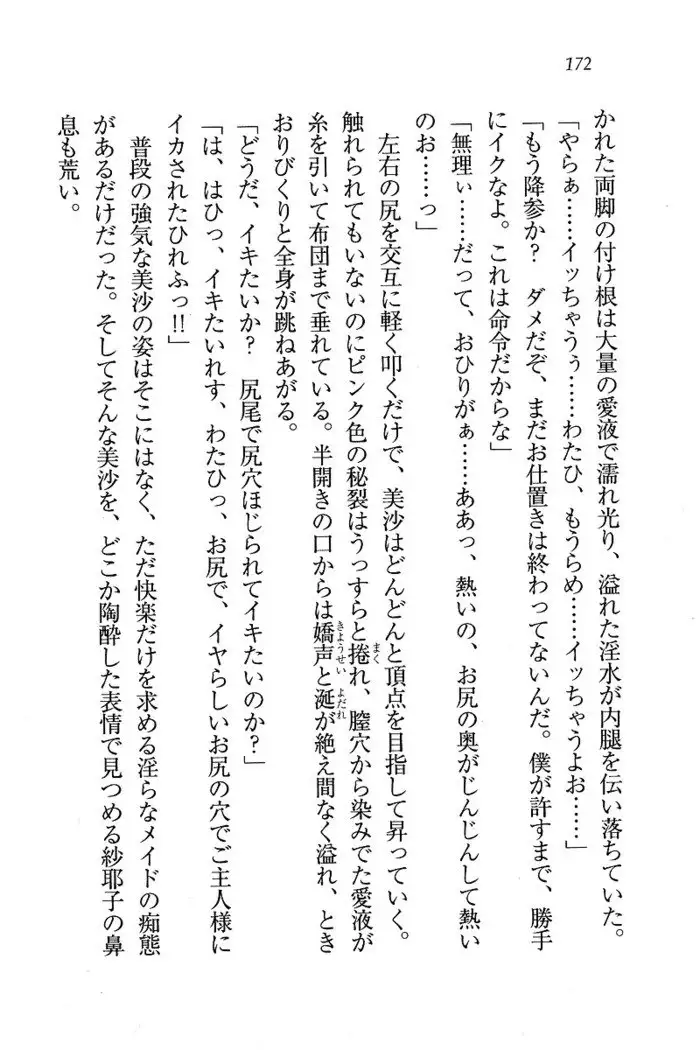 172
かれた両脚の付け根は大量の愛液で濡れ光り、溢れた淫水が内腿を伝い落ちていた。
「やらぁ……イッちゃうぅ……わたひ、もうらめ……イッちゃうよお……」
「もう降参か？　ダメだぞ、まだお仕置きは終わってないんだ。僕が許すまで、勝手
にイクなよ。これは命令だからな」
「無理ぃ……だって、おひりがぁ……ああっ、熱いの、お尻の奥がじんじんして熱い
のお……っ」
左右の尻を交互に軽く叩くだけで、美沙はどんどんと頂点を目指して昇っていく。
触れられてもいないのにピンク色の秘裂はうっすらと捲れ、膣穴から染みでた愛液が
糸を引いて布団まで垂れている。半開きの口からは嬌声と涎が絶え間なく溢れ、とき
おりびくりと全身が跳ねあがる。
「どうだ、イキたいか？　尻尾で尻穴ほじられてイキたいのか？」
「は、はひっ、イキたいれす、わたひっ、お尻で、イヤらしいお尻の穴でご主人様に
イカされたひれふっ!!」
普段の強気な美沙の姿はそこにはなく、ただ快楽だけを求める淫らなメイドの痴態
があるだけだった。そしてそんな美沙を、どこか陶酔した表情で見つめる紗耶子の鼻
息も荒い。